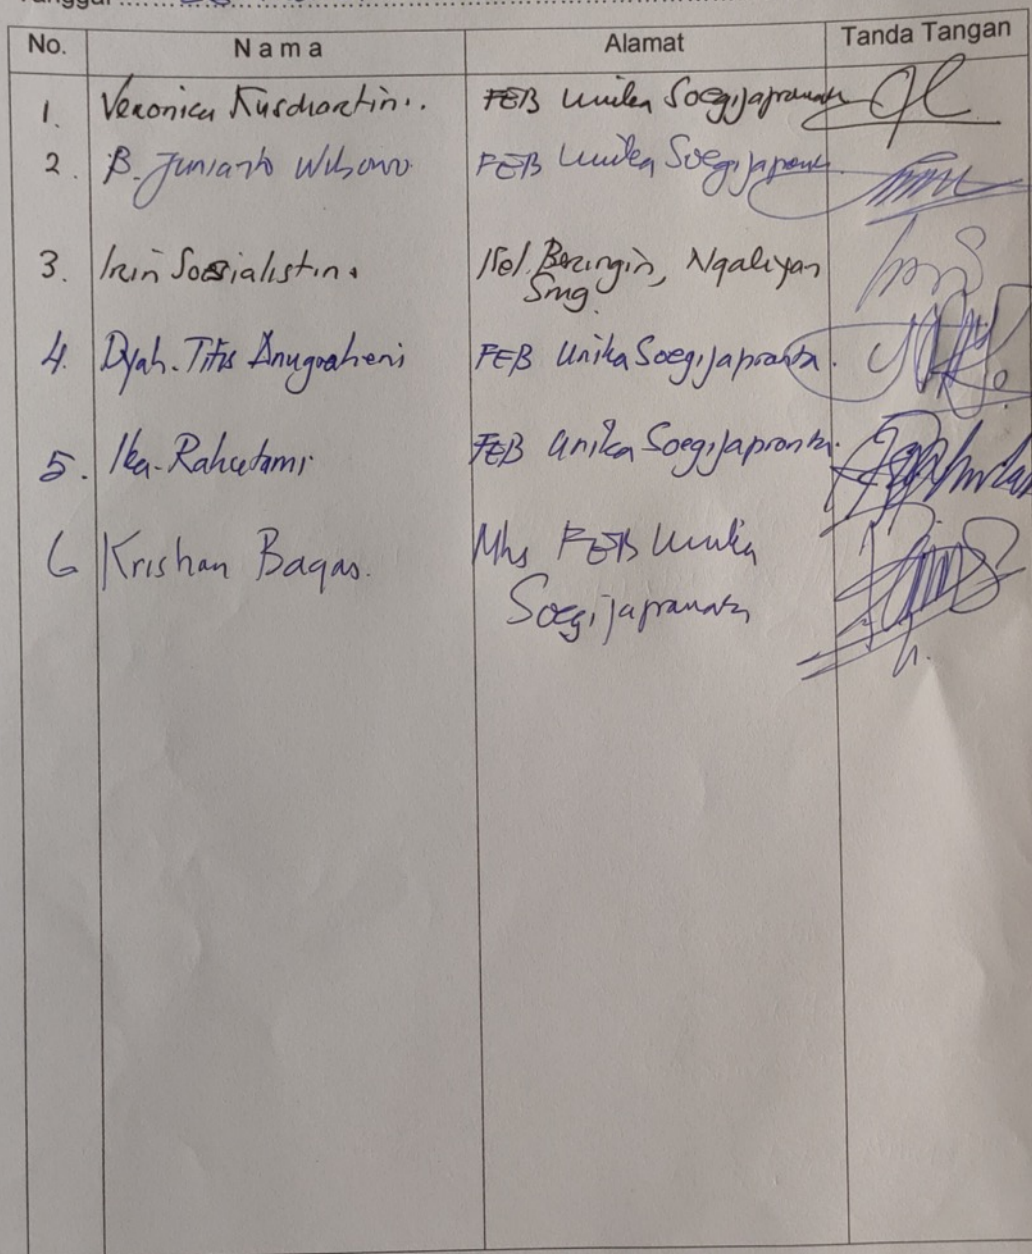 Tanggal
No. Nama Alamat Tanda Tangan
1. Veronica Kusdiartini.. FEB Unika Soegijapranata
2. B. Junianto Wibowo FEB Unika Soegijapranata
3. Irin Sosialistin. Kel. Beringin, Ngaliyan
Smg.
4. Dyah. Titis Anugraheni FEB Unika Soegijapranata.
5. Ika. Rahutami FEB Unika Soegijapranata.
6 Krishan Bagas. Mhs FEB Unika
Soegijapranata